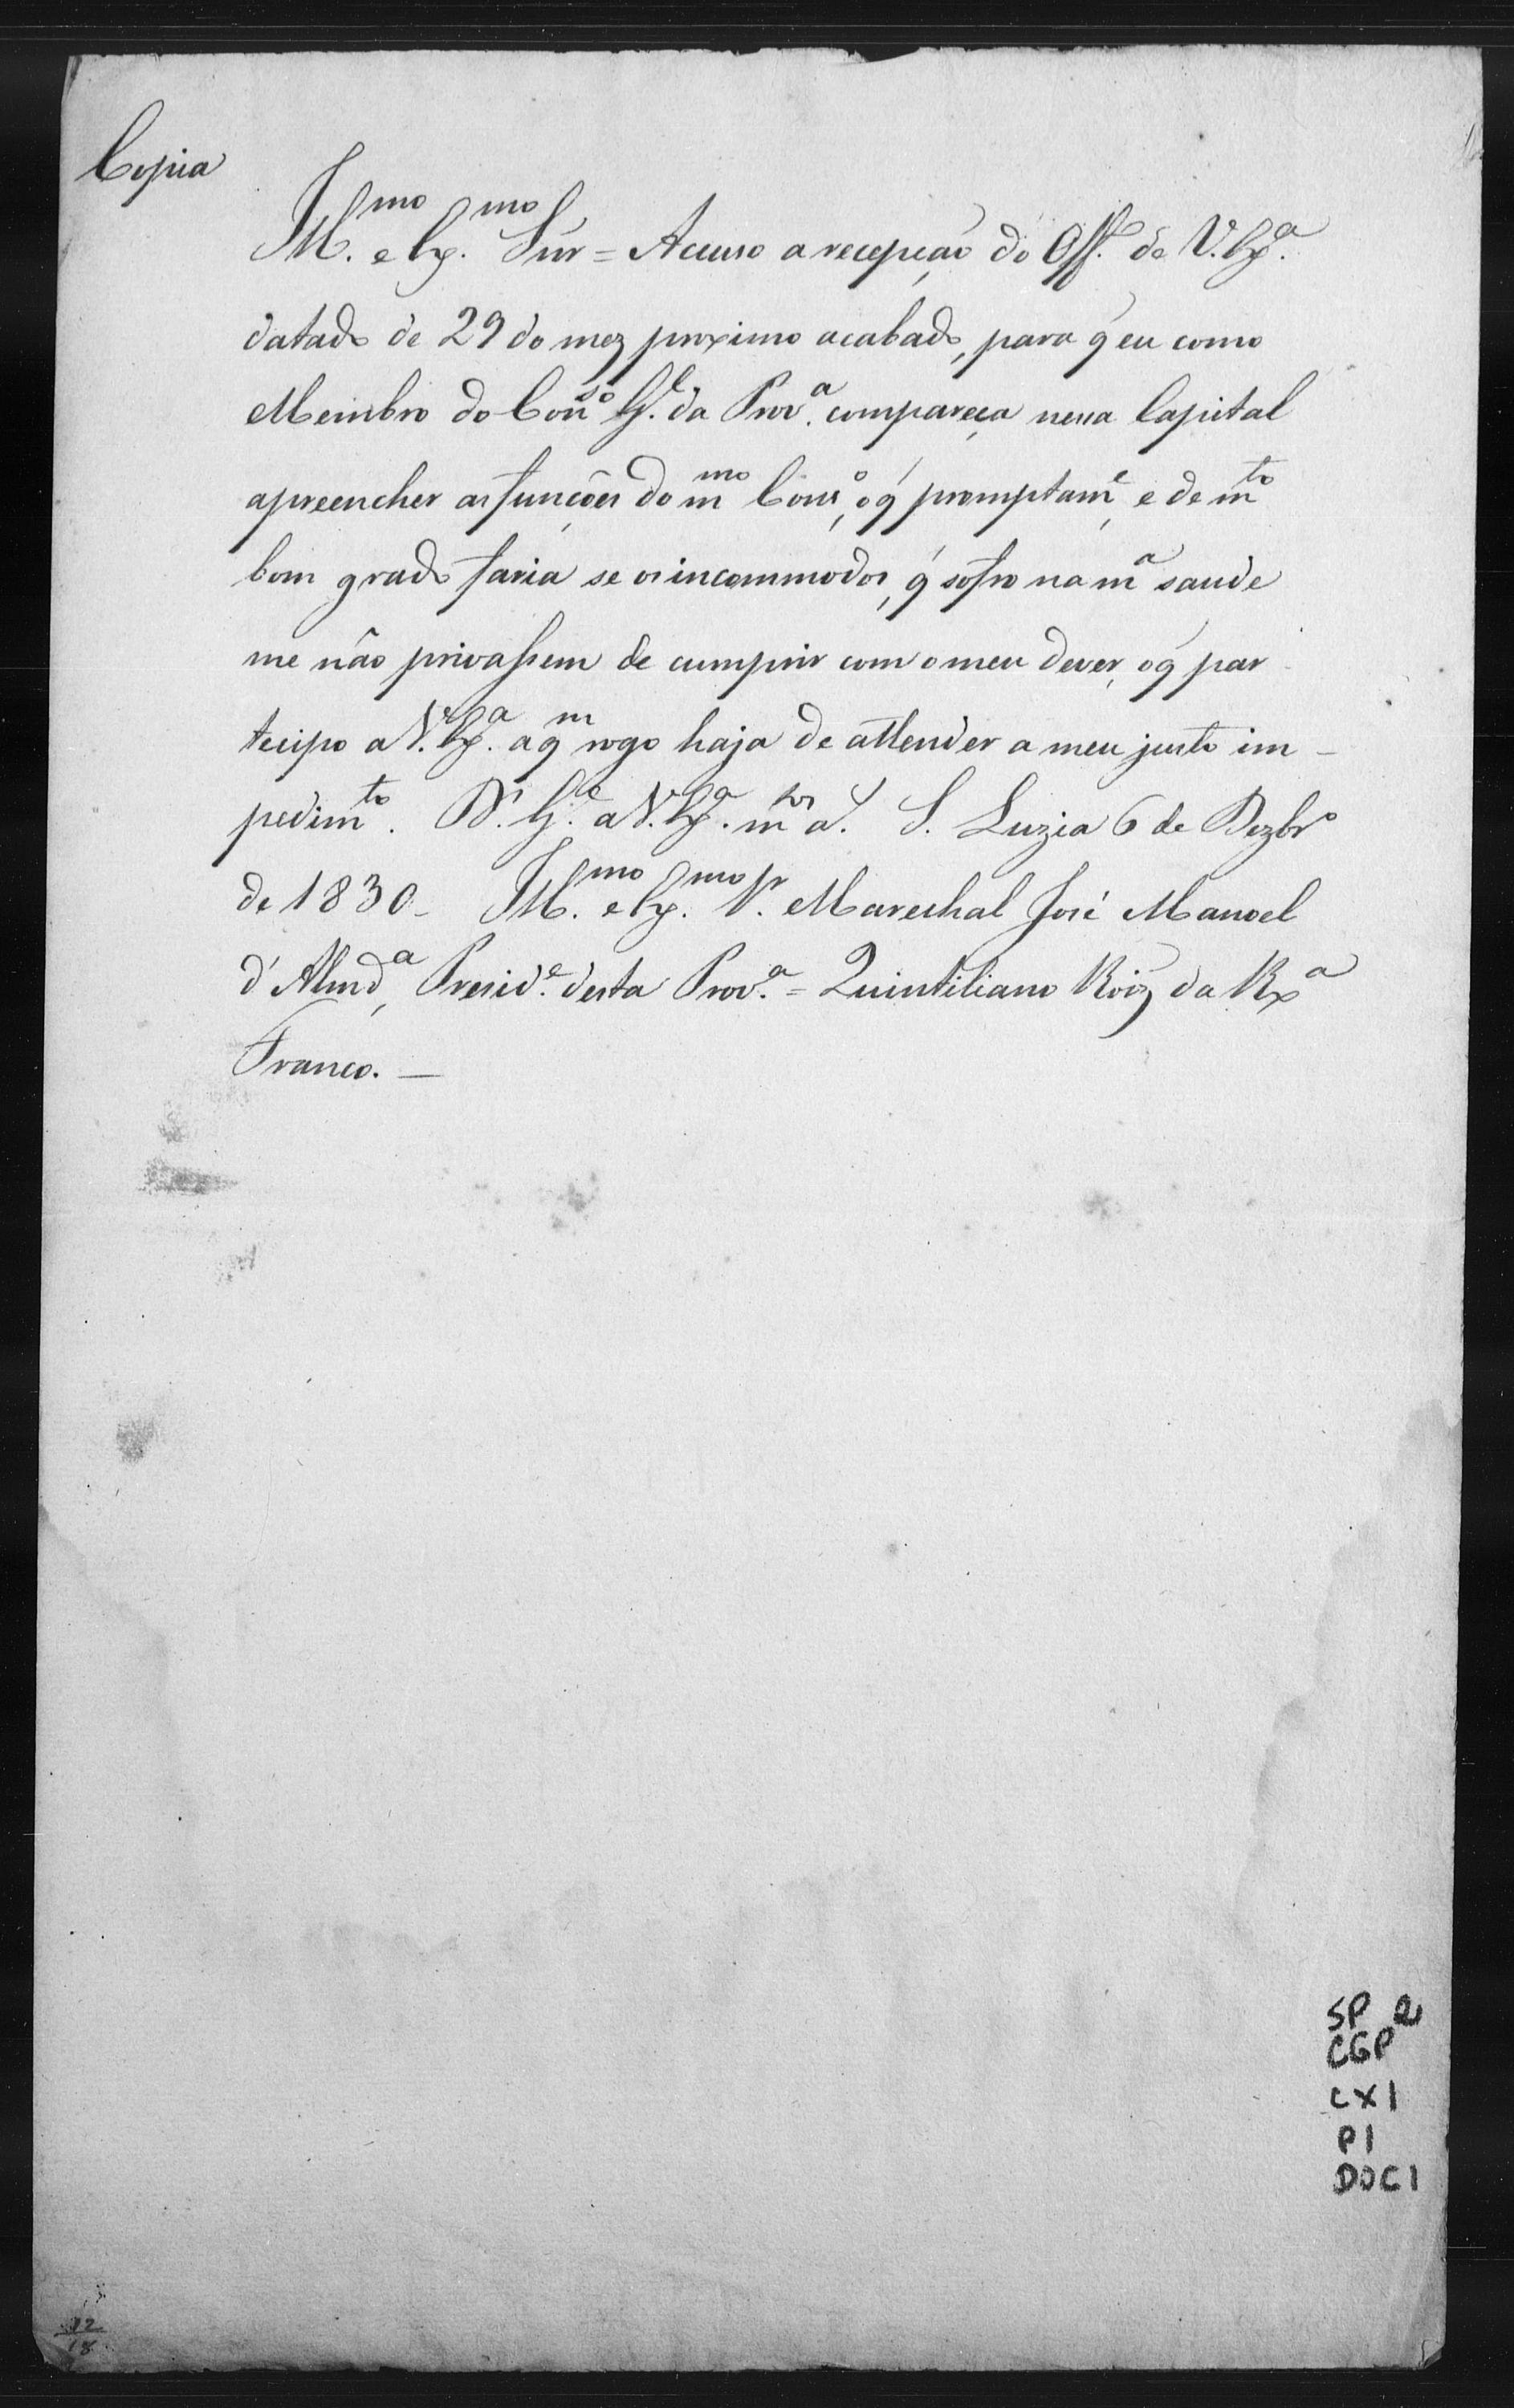 Copia
Ill.mo e Ex.mo Snr = Accuso a recepção do Off.o de V. Ex.a
datado de 29 do mez proximo acabado, para q̃ eu como
Membro do Con.so G.l da Prov.a compareça nessa Capital
a preencher as funções do m.mo Cons.o, o q̃ promptam.e, e de m.to
bom grado faria se os incommodos, q̃ sofro na m.a saude
me não privassem de cumprir com o meu dever, o q̃ par-
tecipo a V. Ex.a a q.m rogo haja de attender a meu justo im-
pedim.to. D.s G.e a V. Ex.a m.tos a.s S. Luzia 6 de Dezbr.o
de 1830_ Ill.mo e Ex.mo Sr. Marechal José Manoel
d'Almd.a, Presid.e desta Prov.a = Quintiliano Roiz da Rx.a
Franco. —
SP 2
CGP
CX1
P1
DOC1
12
18